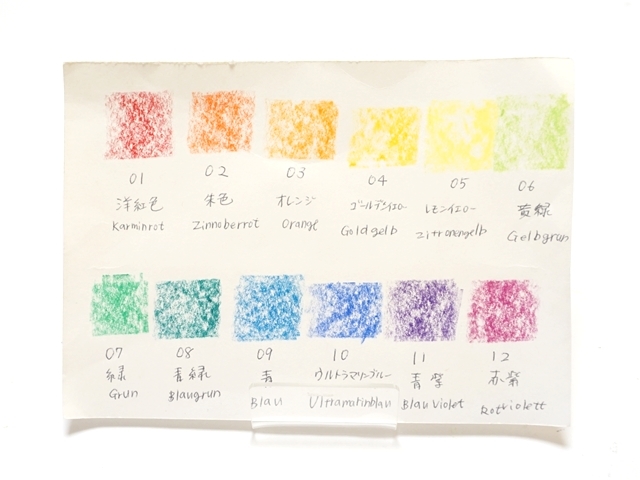 01 02 03 04 05 06
洋紅色 朱色 オレンジ ゴールデンイエロー レモンイエロー 黄緑
Karminrot Zinnoberrot Orange Goldgelb Zitronengelb Gelbgrun
07 08 09 10 11 12
緑 青緑 青 ウルトラマリンブルー 青紫 赤紫
Grun Blaugrun Blau Ultramarinblau Blau violet Rotviolett